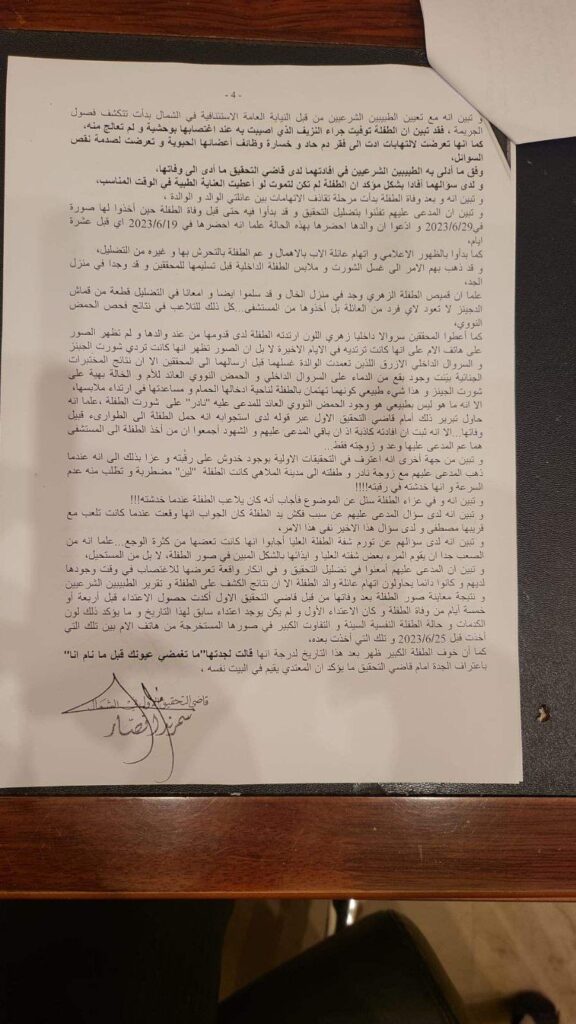 - 4 -
و تبين انه مع تعيين الطبيبين الشرعيين من قبل النيابة العامة الاستئنافية في الشمال بدأت تتكشف فصول
الجريمة ، فقد تبين ان الطفلة توفيت جراء النزيف الذي اصيبت به عند اغتصابها بوحشية و لم تعالج منه،
كما انها تعرضت لالتهابات ادت الى فقر دم حاد و خسارة وظائف أعضائها الحيوية و تعرضت لصدمة نقص
السوائل،
وفق ما أدلى به الطبيبين الشرعيين في افادتهما لدى قاضي التحقيق ما أدى الى وفاتها،
و لدى سؤالهما أفادا بشكل مؤكد ان الطفلة لم تكن لتموت لو أعطيت العناية الطبية في الوقت المناسب،
و تبين انه و بعد وفاة الطفلة بدأت مرحلة تقاذف الاتهامات بين عائلتي الوالد و الوالدة ،
و تبين ان المدعى عليهم تفننوا بتضليل التحقيق و قد بدأوا فيه حتى قبل وفاة الطفلة حين أخذوا لها صورة
في 2023/6/29 و ادعوا ان والدها احضرها بهذه الحالة علما انه احضرها في 2023/6/19 اي قبل عشرة
ايام،
كما بدأوا بالظهور الاعلامي و اتهام عائلة الاب بالاهمال و عم الطفلة بالتحرش بها و غيره من التضليل،
و قد ذهب بهم الامر الى غسل الشورت و ملابس الطفلة الداخلية قبل تسليمها للمحققين و قد وجدا في منزل
الجد،
علما ان قميص الطفلة الزهري وجد في منزل الخال و قد سلموا ايضا و امعانا في التضليل قطعة من قماش
الدجينز لا تعود لاي فرد من العائلة بل أخذوها من المستشفى...كل ذلك للتلاعب في نتائج فحص الحمض
النووي،
كما أعطوا المحققين سروالا داخليا زهري اللون ارتدته الطفلة لدى قدومها من عند والدها و لم تظهر الصور
على هاتف الام على انها كانت ترتديه في الايام الاخيرة لا بل ان الصور تظهر انها كانت تردي شورت الجينز
و السروال الداخلي الازرق اللذين تعمدت الوالدة غسلهما قبل ارسالهما الى المحققين الا ان نتائج المختبرات
الجنائية بينت وجود بقع من الدماء على السروال الداخلي و الحمض النووي العائد للأم و الخالة بهية على
شورت الجينز و هذا شيء طبيعي كونهما تهتمان بالطفلة لناحية ادخالها الحمام و مساعدتها في ارتداء ملابسها،
الا انه ما هو ليس بطبيعي هو وجود الحمض النووي العائد للمدعى عليه "نادر" على شورت الطفلة ،علما انه
حاول تبرير ذلك أمام قاضي التحقيق الاول عبر قوله لدى استجوابه انه حمل الطفلة الى الطوارىء قبيل
وفاتها...الا انه ثبت ان افادته كاذبة اذ ان باقي المدعى عليهم و الشهود أجمعوا ان من أخذ الطفلة الى المستشفى
هما عم المدعى عليها وعد و زوجته فقط.
و تبين من جهة أخرى انه اعترف في التحقيقات الاولية بوجود خدوش على رقبته و عزا بذلك الى انه عندما
ذهب المدعى عليهم مع زوجة نادر و طفلته الى مدينة الملاهي كانت الطفلة "لين" مضطربة و تطلب منه عدم
السرعة و انها خدشته في رقبته!!!!
و تبين انه و في عزاء الطفلة سئل عن الموضوع فأجاب أنه كان يلاعب الطفلة عندما خدشته!!!
و تبين انه لدى سؤال المدعى عليهم عن سبب فكش يد الطفلة كان الجواب انها وقعت عندما كانت تلعب مع
قريبها مصطفى و لدى سؤال هذا الاخير نفى هذا الامر،
و تبين انه لدى سؤالهم عن تورم شفة الطفلة العليا أجابوا انها كانت تعضها من كثرة الوجع...علما انه من
الصعب جدا ان يقوم المرء بعض شفته العليا و ايذائها بالشكل المبين في صور الطفلة، لا بل من المستحيل،
و تبين ان المدعى عليهم أمعنوا في تضليل التحقيق و في انكار واقعة تعرضها للاغتصاب في وقت وجودها
لديهم و كانوا دائما يحاولون اتهام عائلة والد الطفلة الا ان نتائج الكشف على الطفلة و تقرير الطبيبين الشرعيين
و نتيجة معاينة صور الطفلة بعد وفاتها من قبل قاضي التحقيق الاول أكدت حصول الاعتداء قبل أربعة أو
خمسة أيام من وفاة الطفلة و كان الاعتداء الأول و لم يكن يوجد اعتداء سابق لهذا التاريخ و ما أكد ذلك لون
الكدمات و حالة الطفلة النفسية السيئة و التفاوت الكبير في صورها المستخرجة من هاتف الام بين تلك التي
أخذت قبل 2023/6/25 و تلك التي أخذت بعده،
كما أن خوف الطفلة الكبير ظهر بعد هذا التاريخ لدرجة انها قالت لجدتها"ما تغمضي عيونك قبل ما نام انا"
باعتراف الجدة امام قاضي التحقيق ما يؤكد ان المعتدي يقيم في البيت نفسه ،
قاضي التحقيق
سمرندا نصار